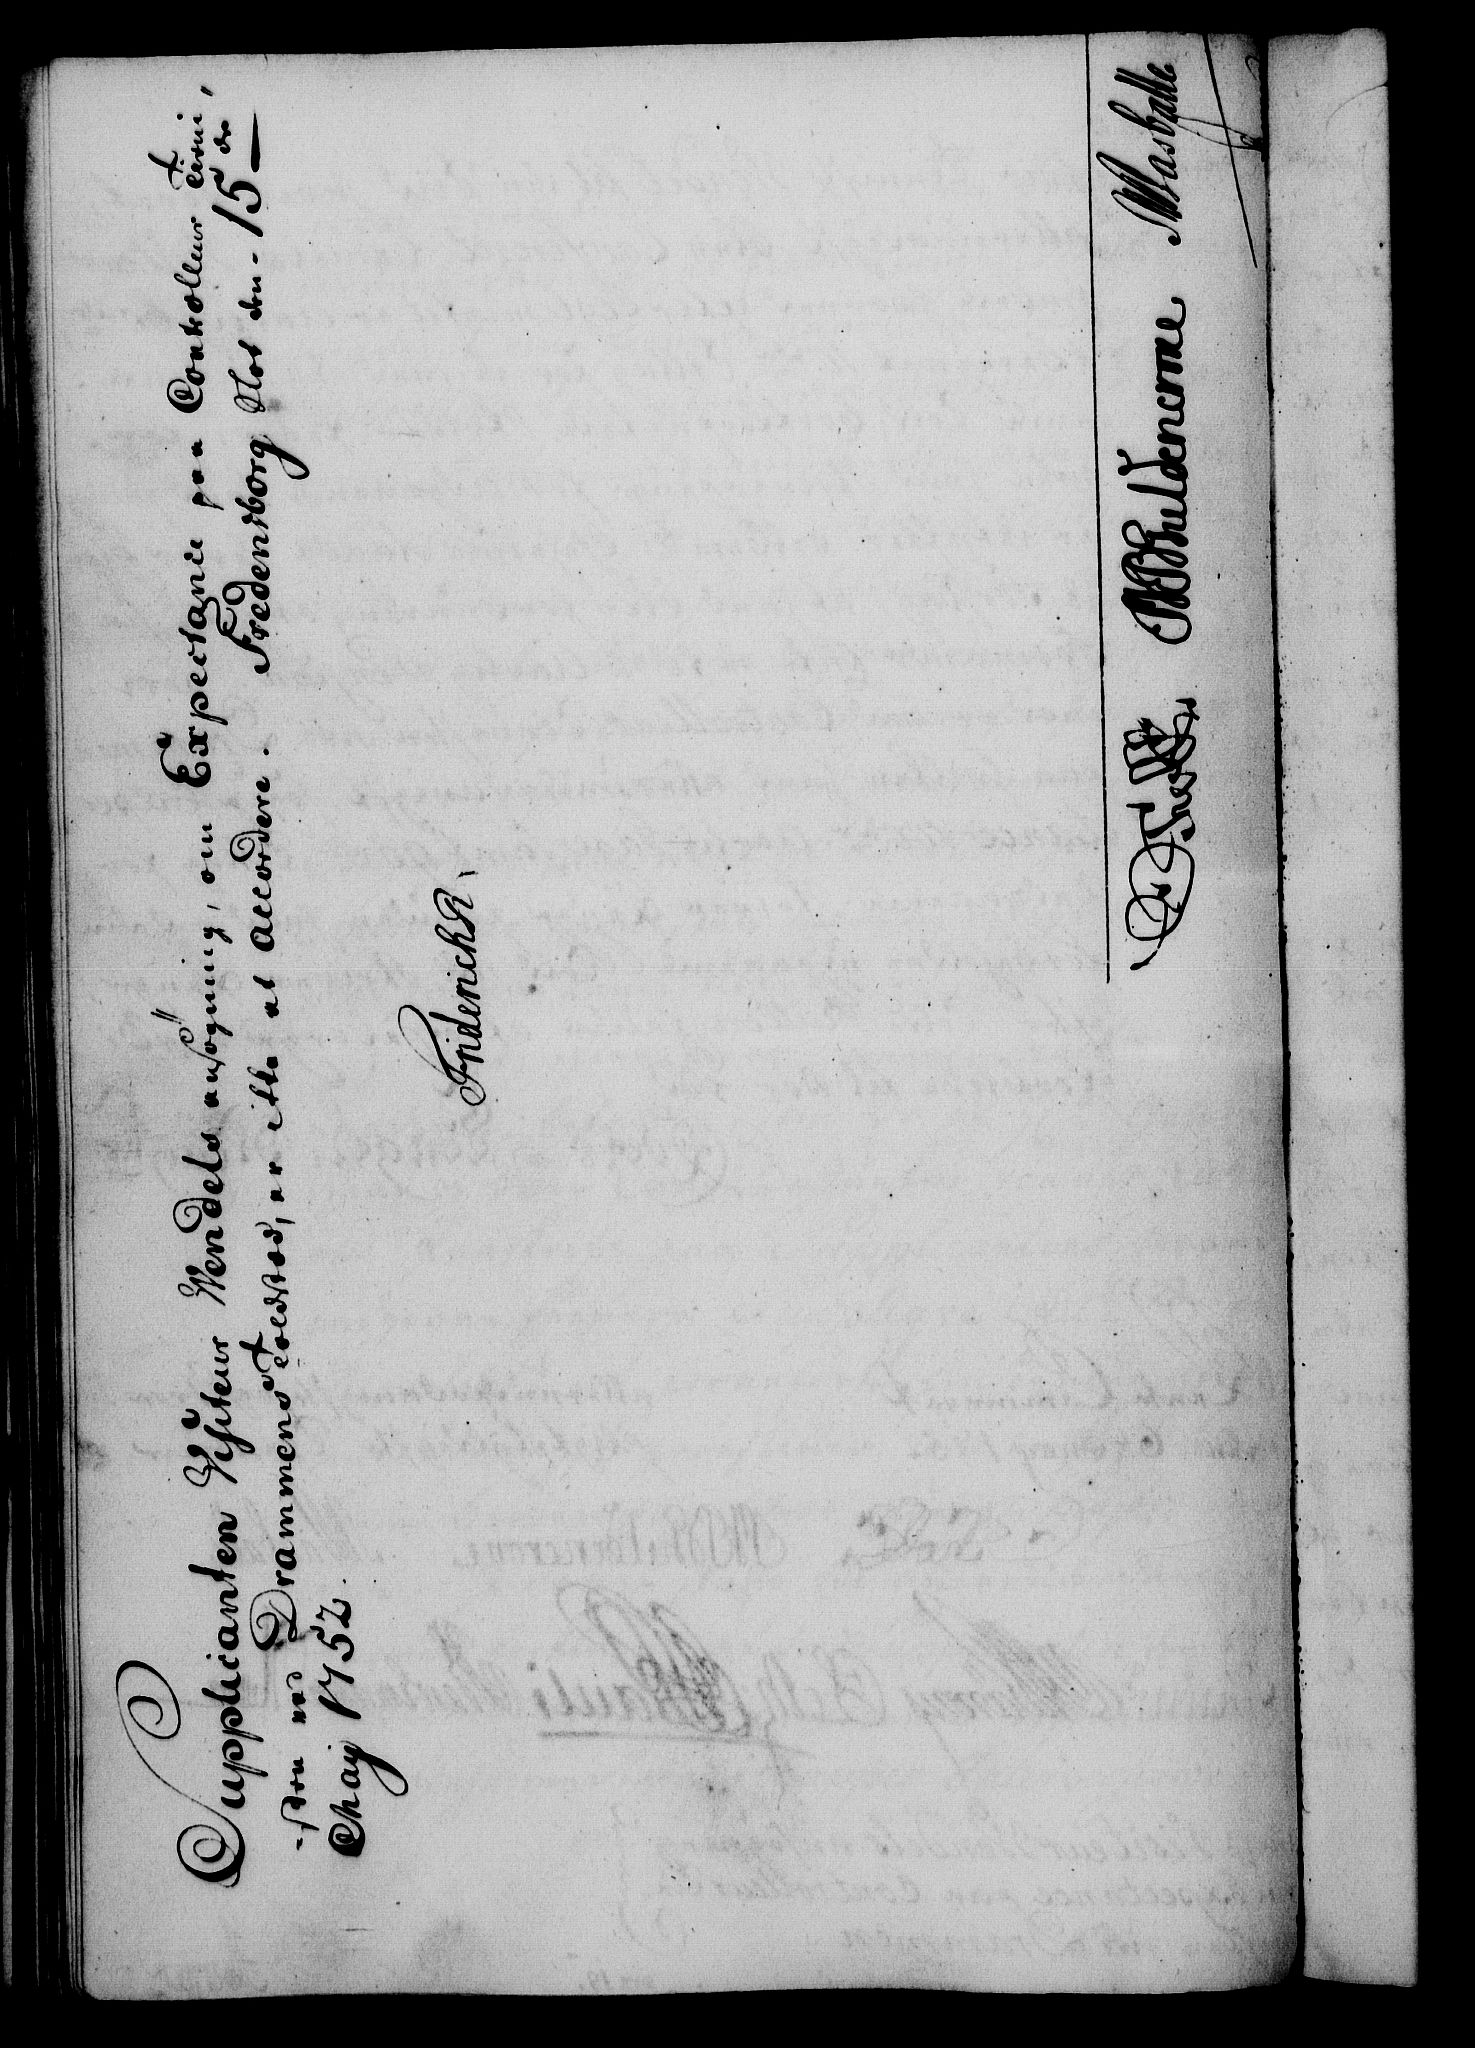 Supplicanten Visiteur Wendels ansøgning, om Expectance paa Controlleur tieni,
-sten ved Drammens toldsted, er ikke at accordere. Fredensborg Slot den 15de
Maij 1752.
Friderich R.
Holdencrone